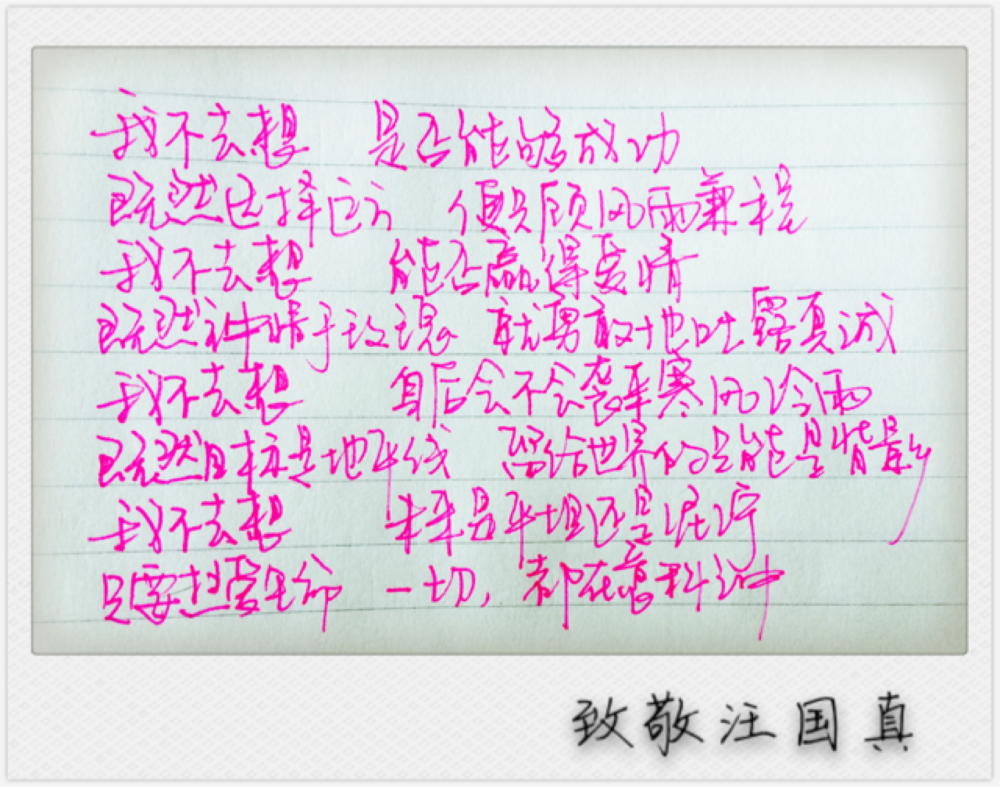 我不去想 是否能够成功
既然选择远方 便只顾风雨兼程
我不去想 能否赢得爱情
既然钟情于玫瑰 就勇敢地吐露真诚
我不去想 身后会不会袭来寒风冷雨
既然目标是地平线 留给世界的只能是背影
我不去想 未来是平坦还是泥泞
只要热爱生命 一切,都在意料之中
致敬汪国真